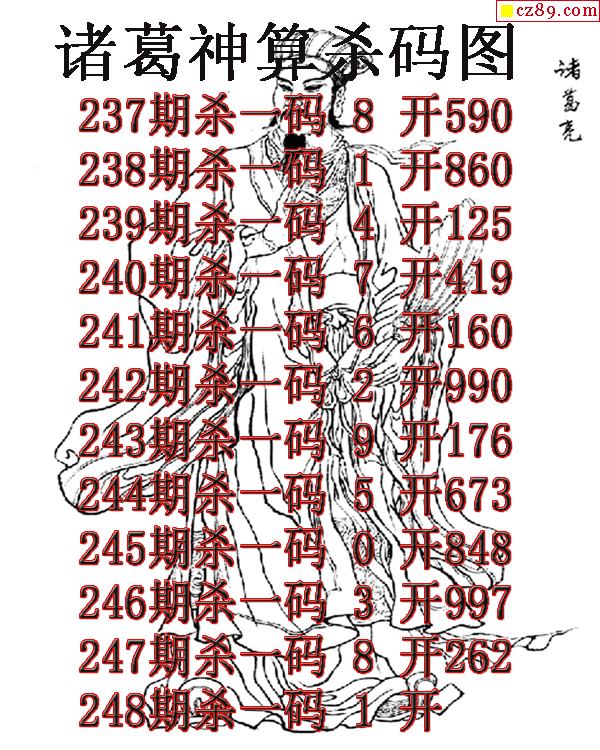 cz89.com
诸葛神算杀码图
诸葛亮
237期杀一码 8 开590
238期杀一码 1 开860
239期杀一码 4 开125
240期杀一码 7 开419
241期杀一码 6 开160
242期杀一码 2 开990
243期杀一码 9 开176
244期杀一码 5 开673
245期杀一码 0 开848
246期杀一码 3 开997
247期杀一码 8 开262
248期杀一码 1 开